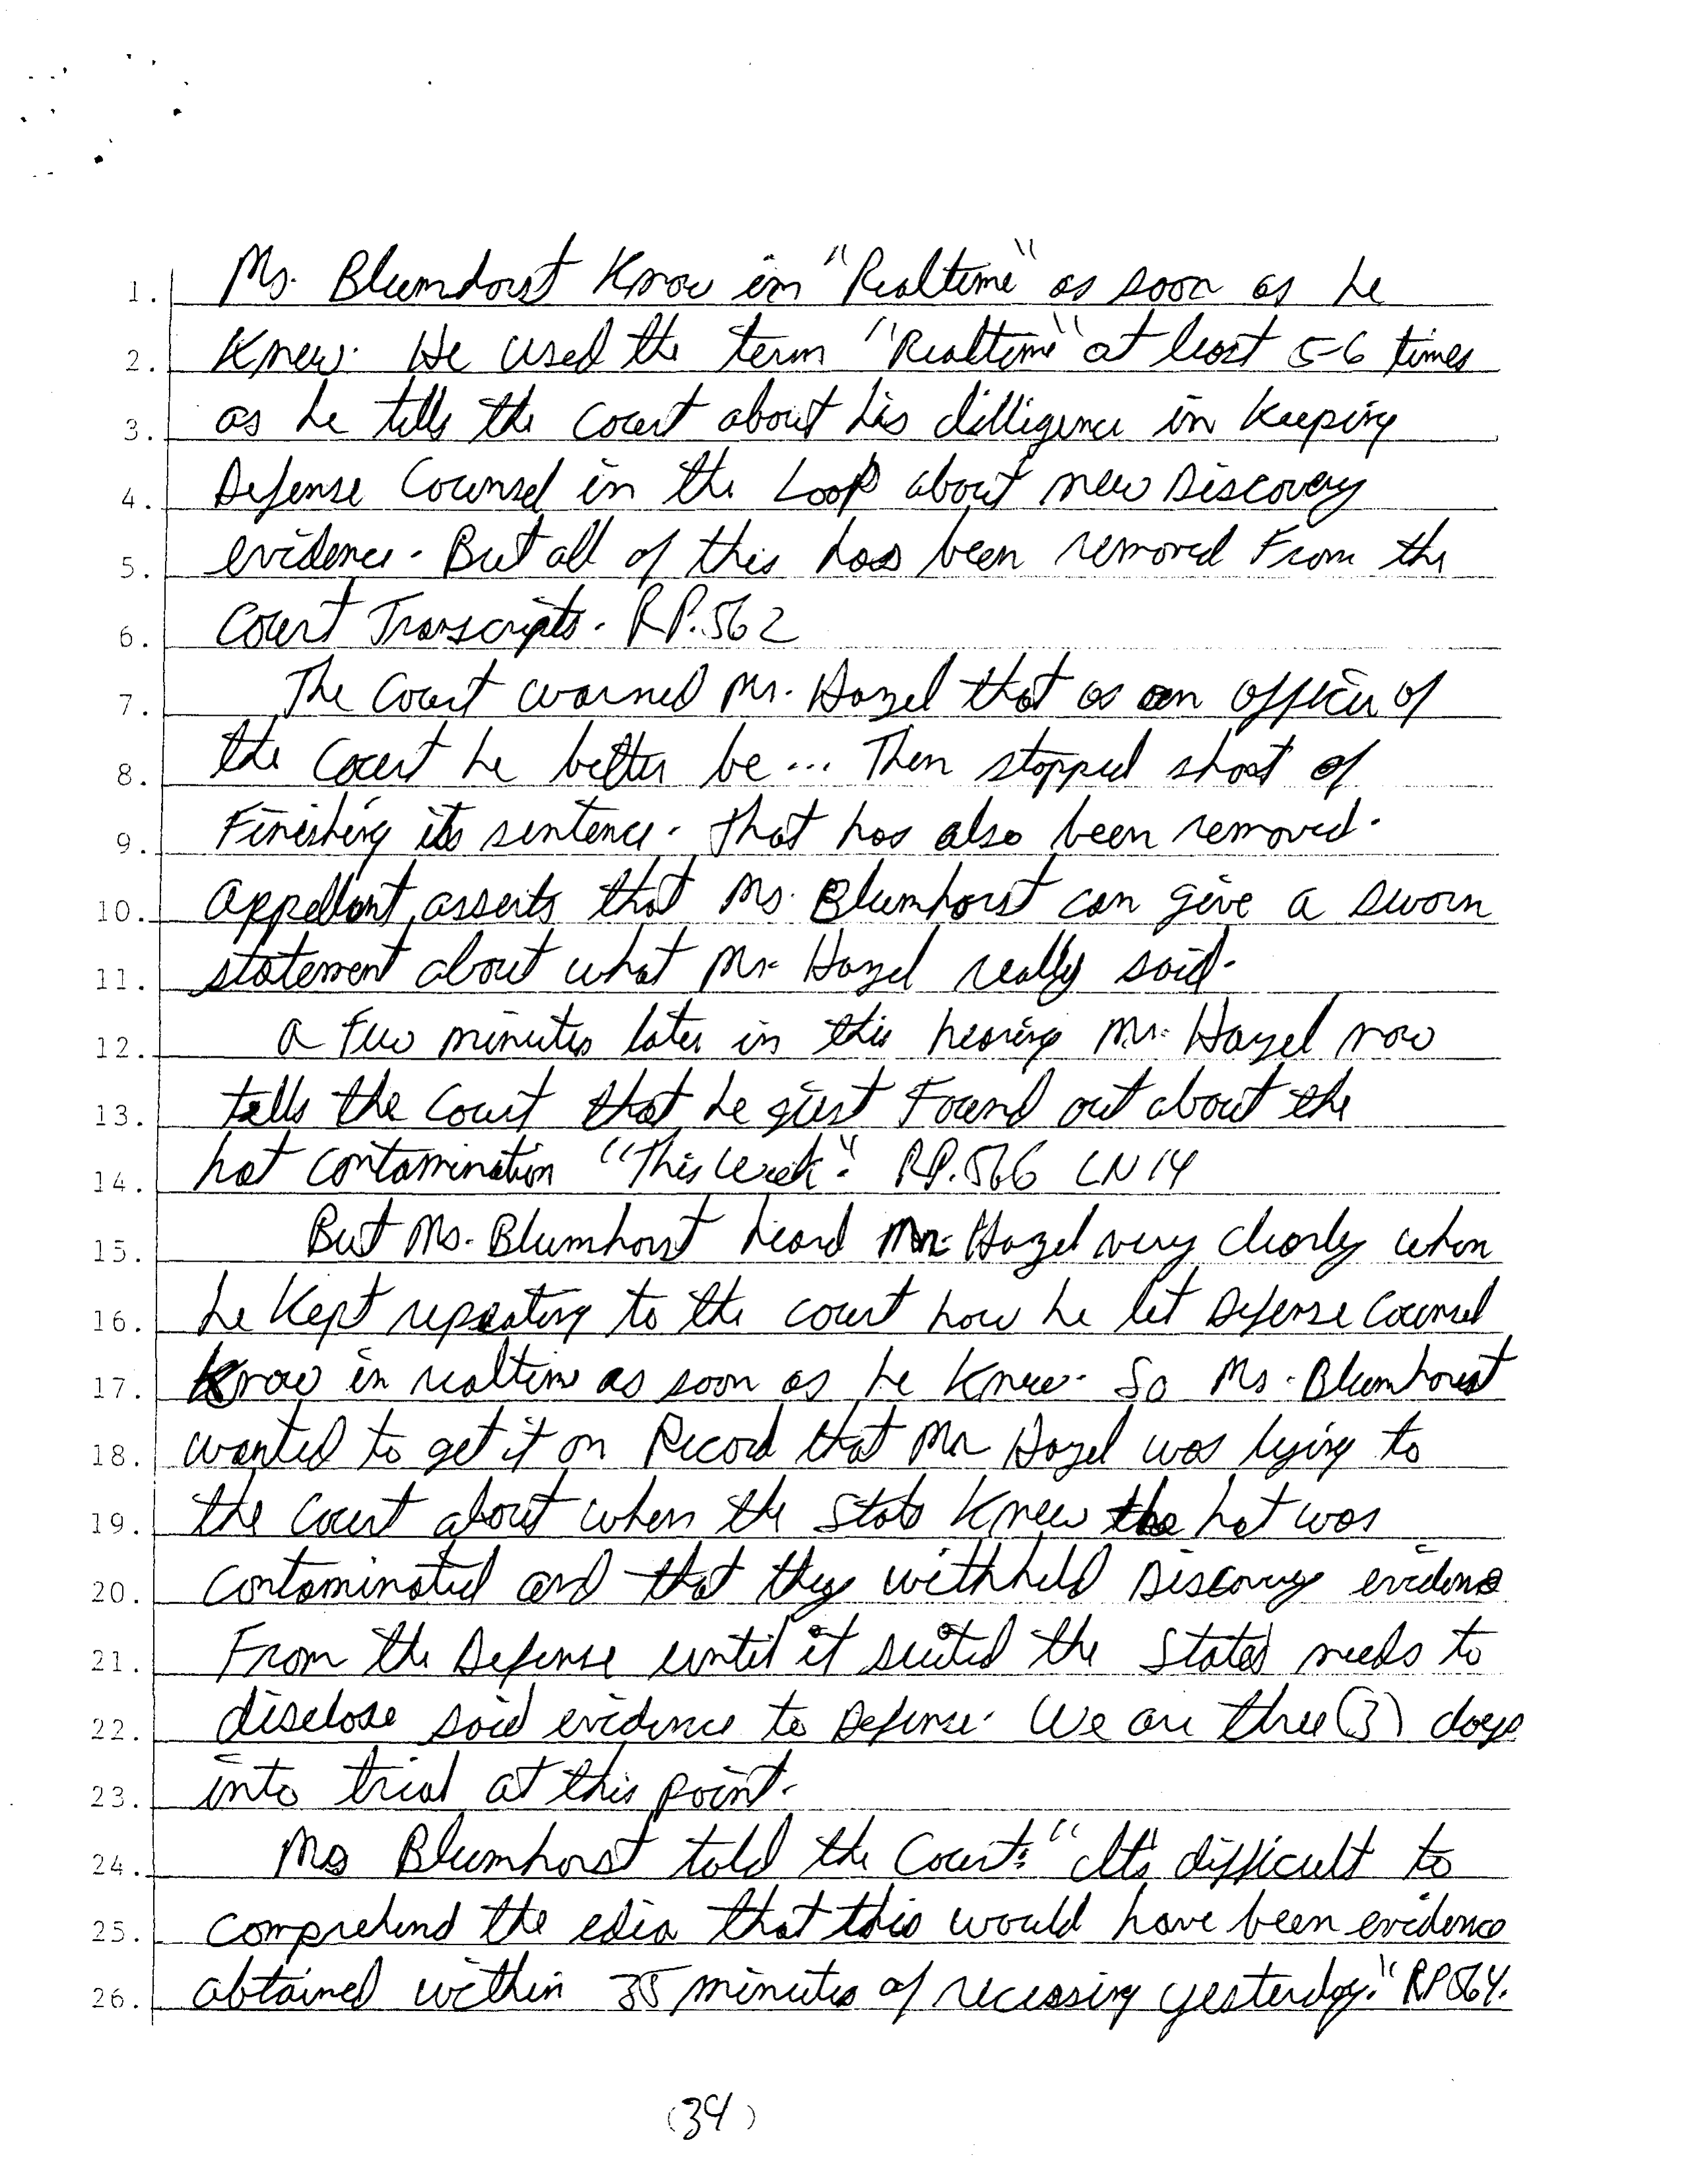 1. Ms. Blumhorst Know in "Realtime" as soon as he
2. Knew. He used the term "Realtime" at least 5-6 times
3. as he tells the court about his dilligence in Keeping
4. Defense Counsel in the Loop about new Discovery
5. evidence. But all of this has been removed From the
6. Court Transcripts. RP.562
7. The Court warned Mr. Hazel that as an officer of
8. the Court he better be... Then stopped short of
9. Finishing its sentence. That has also been removed.
10. Appellant, asserts that Ms. Blumhorst can give a sworn
11. statement about what Mr. Hazel really said.
12. A Few minutes later in this hearing Mr. Hazel now
13. tells the Court that he just Found out about the
14. hat contamination "This Week". RP.566 LN 14
15. But Ms. Blumhorst heard Mr. Hazel very clearly when
16. he Kept repeating to the court how he let Defense Counsel
17. Know in realtime as soon as he Knew. So Ms. Blumhorst
18. wanted to get it on Record that Mr Hazel was lying to
19. the Court about when the State Knew the hat was
20. contaminated and that they withheld Discovery evidence
21. From the Defense until it suited the States needs to
22. disclose said evidence to Defense. We are three (3) days
23. into trial at this point.
24. Ms Blumhorst told the Court: "It's difficult to
25. comprehend the edia that this would have been evidence
26. obtained within 35 minutes of recessing yesterday." RP 564.
(34)